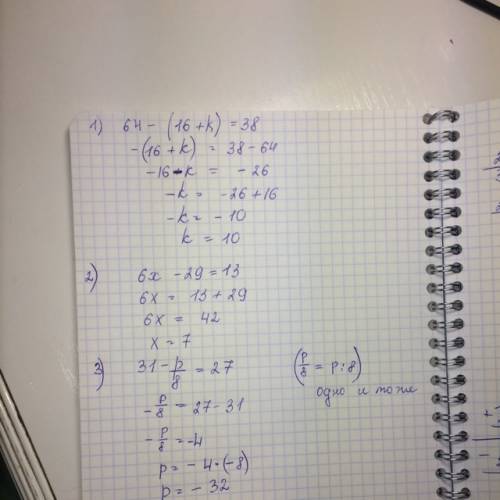 1) 64 - (16 + k) = 38
-(16 + k) = 38 - 64
-16 - k = - 26
-k = -26 + 16
-k = - 10
k = 10
2) 6x - 29 = 13
6x = 13 + 29
6x = 42
x = 7
3) 31 - p/8 = 27 (p/8 = p : 8)
одно и тоже
- p/8 = 27 - 31
- p/8 = -4
p = - 4 · (-8)
p = - 32